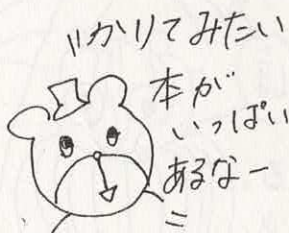 かりてみたい
本が
いっぱい
あるなー